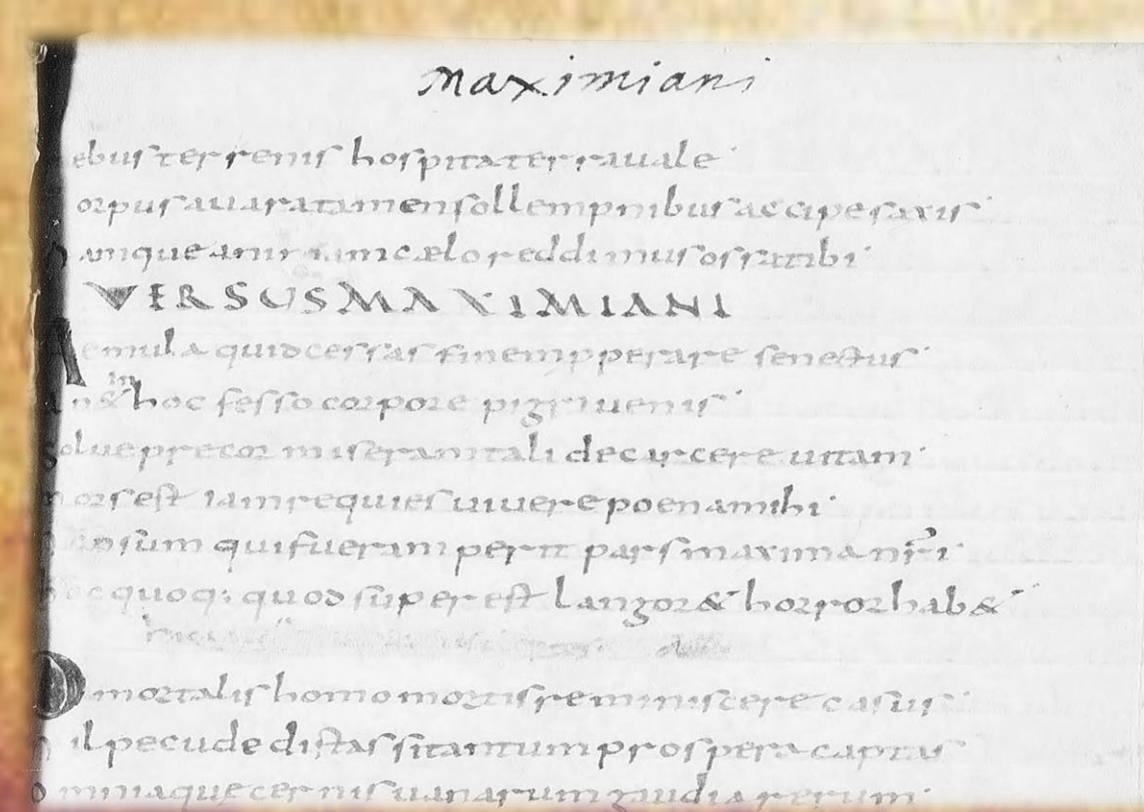 Maximiani
ebus terrenis hospita terra uale
orpus auara tamen sollempnibus accipe saxis
cælo reddimus ossa tibi
VERSUS MAXIMIANI
Aemula quid cessas finem pperare senectus
in
& hoc fesso corpore pigri uenis
Solue precor miseram tali de carcere uitam
mors est iam requies uiuere poena mihi
sum qui fueram periit pars maxima nr̄i
hoc quoq; quod superest langor & horror hab&
O mortalis homo mortis reminiscere casus
il pecude distas si tantum prospera captas
omniaque cernis uanarum gaudia rerum